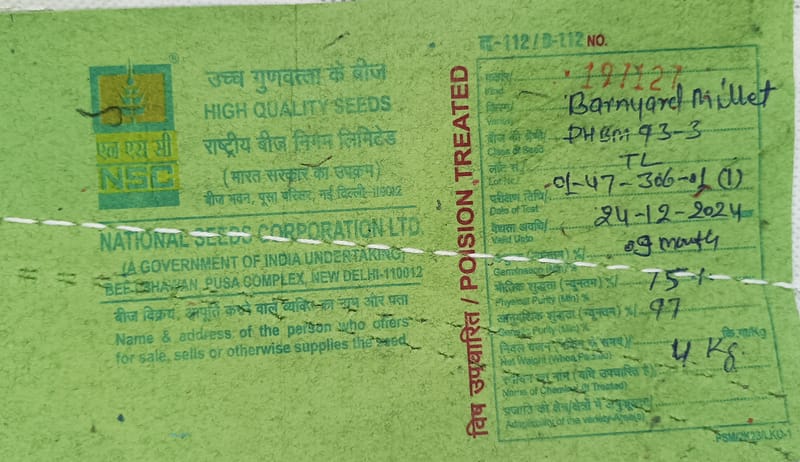 एन एस सी
NSC
®
उच्च गुणवत्ता के बीज
HIGH QUALITY SEEDS
राष्ट्रीय बीज निगम लिमिटेड
(भारत सरकार का उपक्रम)
बीज भवन, पूसा परिसर, नई दिल्ली-110012
NATIONAL SEEDS CORPORATION LTD.
(A GOVERNMENT OF INDIA UNDERTAKING)
BEEJ BHAWAN, PUSA COMPLEX, NEW DELHI-110012
बीज विक्रय, आपूर्ति करने वाले व्यक्ति का नाम और पता
Name & address of the person who offers
for sale, sells or otherwise supplies the seed
विष उपचारित / POISION TREATED
-112/B-112 NO.
Kind
Barnyard Millet
Variety
बीज की श्रेणी/ DHBM 93-3
Class of Seed
TL
लॉट सं./
Lot No./ 01-47-306-01 (1)
परीक्षण तिथि/
Date of Test 24-12-2024
वैधता अवधि/
Valid Upto 09 month
Germination (Min) %/ 75+
भौतिक शुद्धता (न्यूनतम) %/
Physical Purity (Min) % 97
आनुवंशिक शुद्धता (न्यूनतम) %/
Genetic Purity (Min) %
कि.ग्रा/Kg
Net Weight (When Packed) 4 Kg.
रसायन का नाम (यदि उपचारित है)
Name of Chemical (If Treated)
प्रजाति की क्षेत्र/क्षेत्रों में अनुकूलता
Adaptability of the variety-Area(s)
PSM/2K23/LKO-1